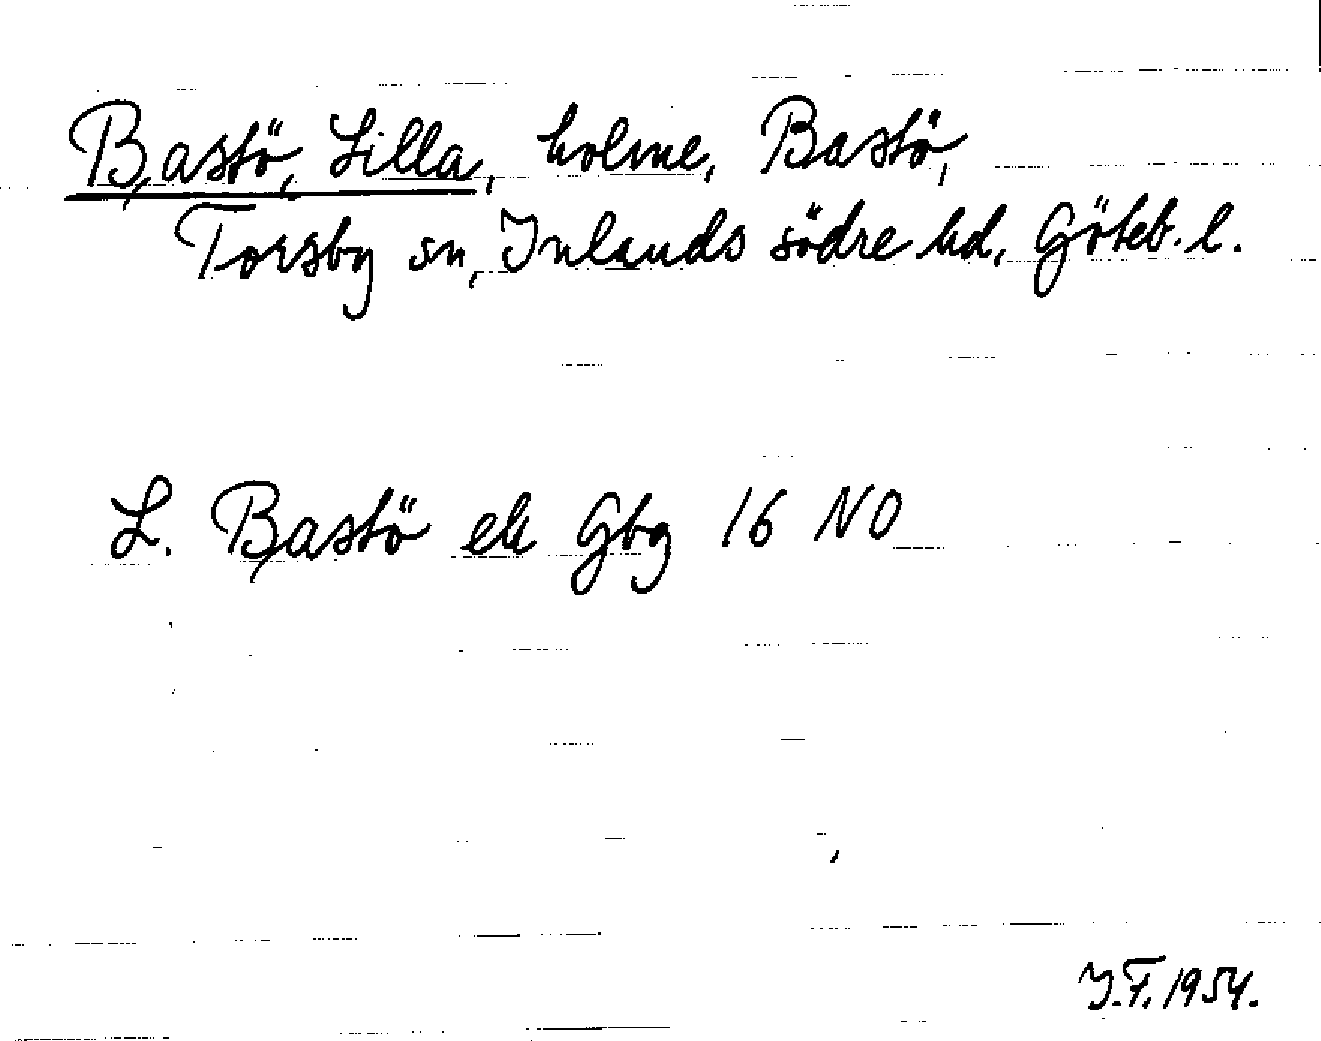 Bastö, Lilla, holme, Bastö,
Torsby sn, Inlands södre hd, Göteb. l.
L. Bastö ek Gbg 16 NO
I.F. 1954.